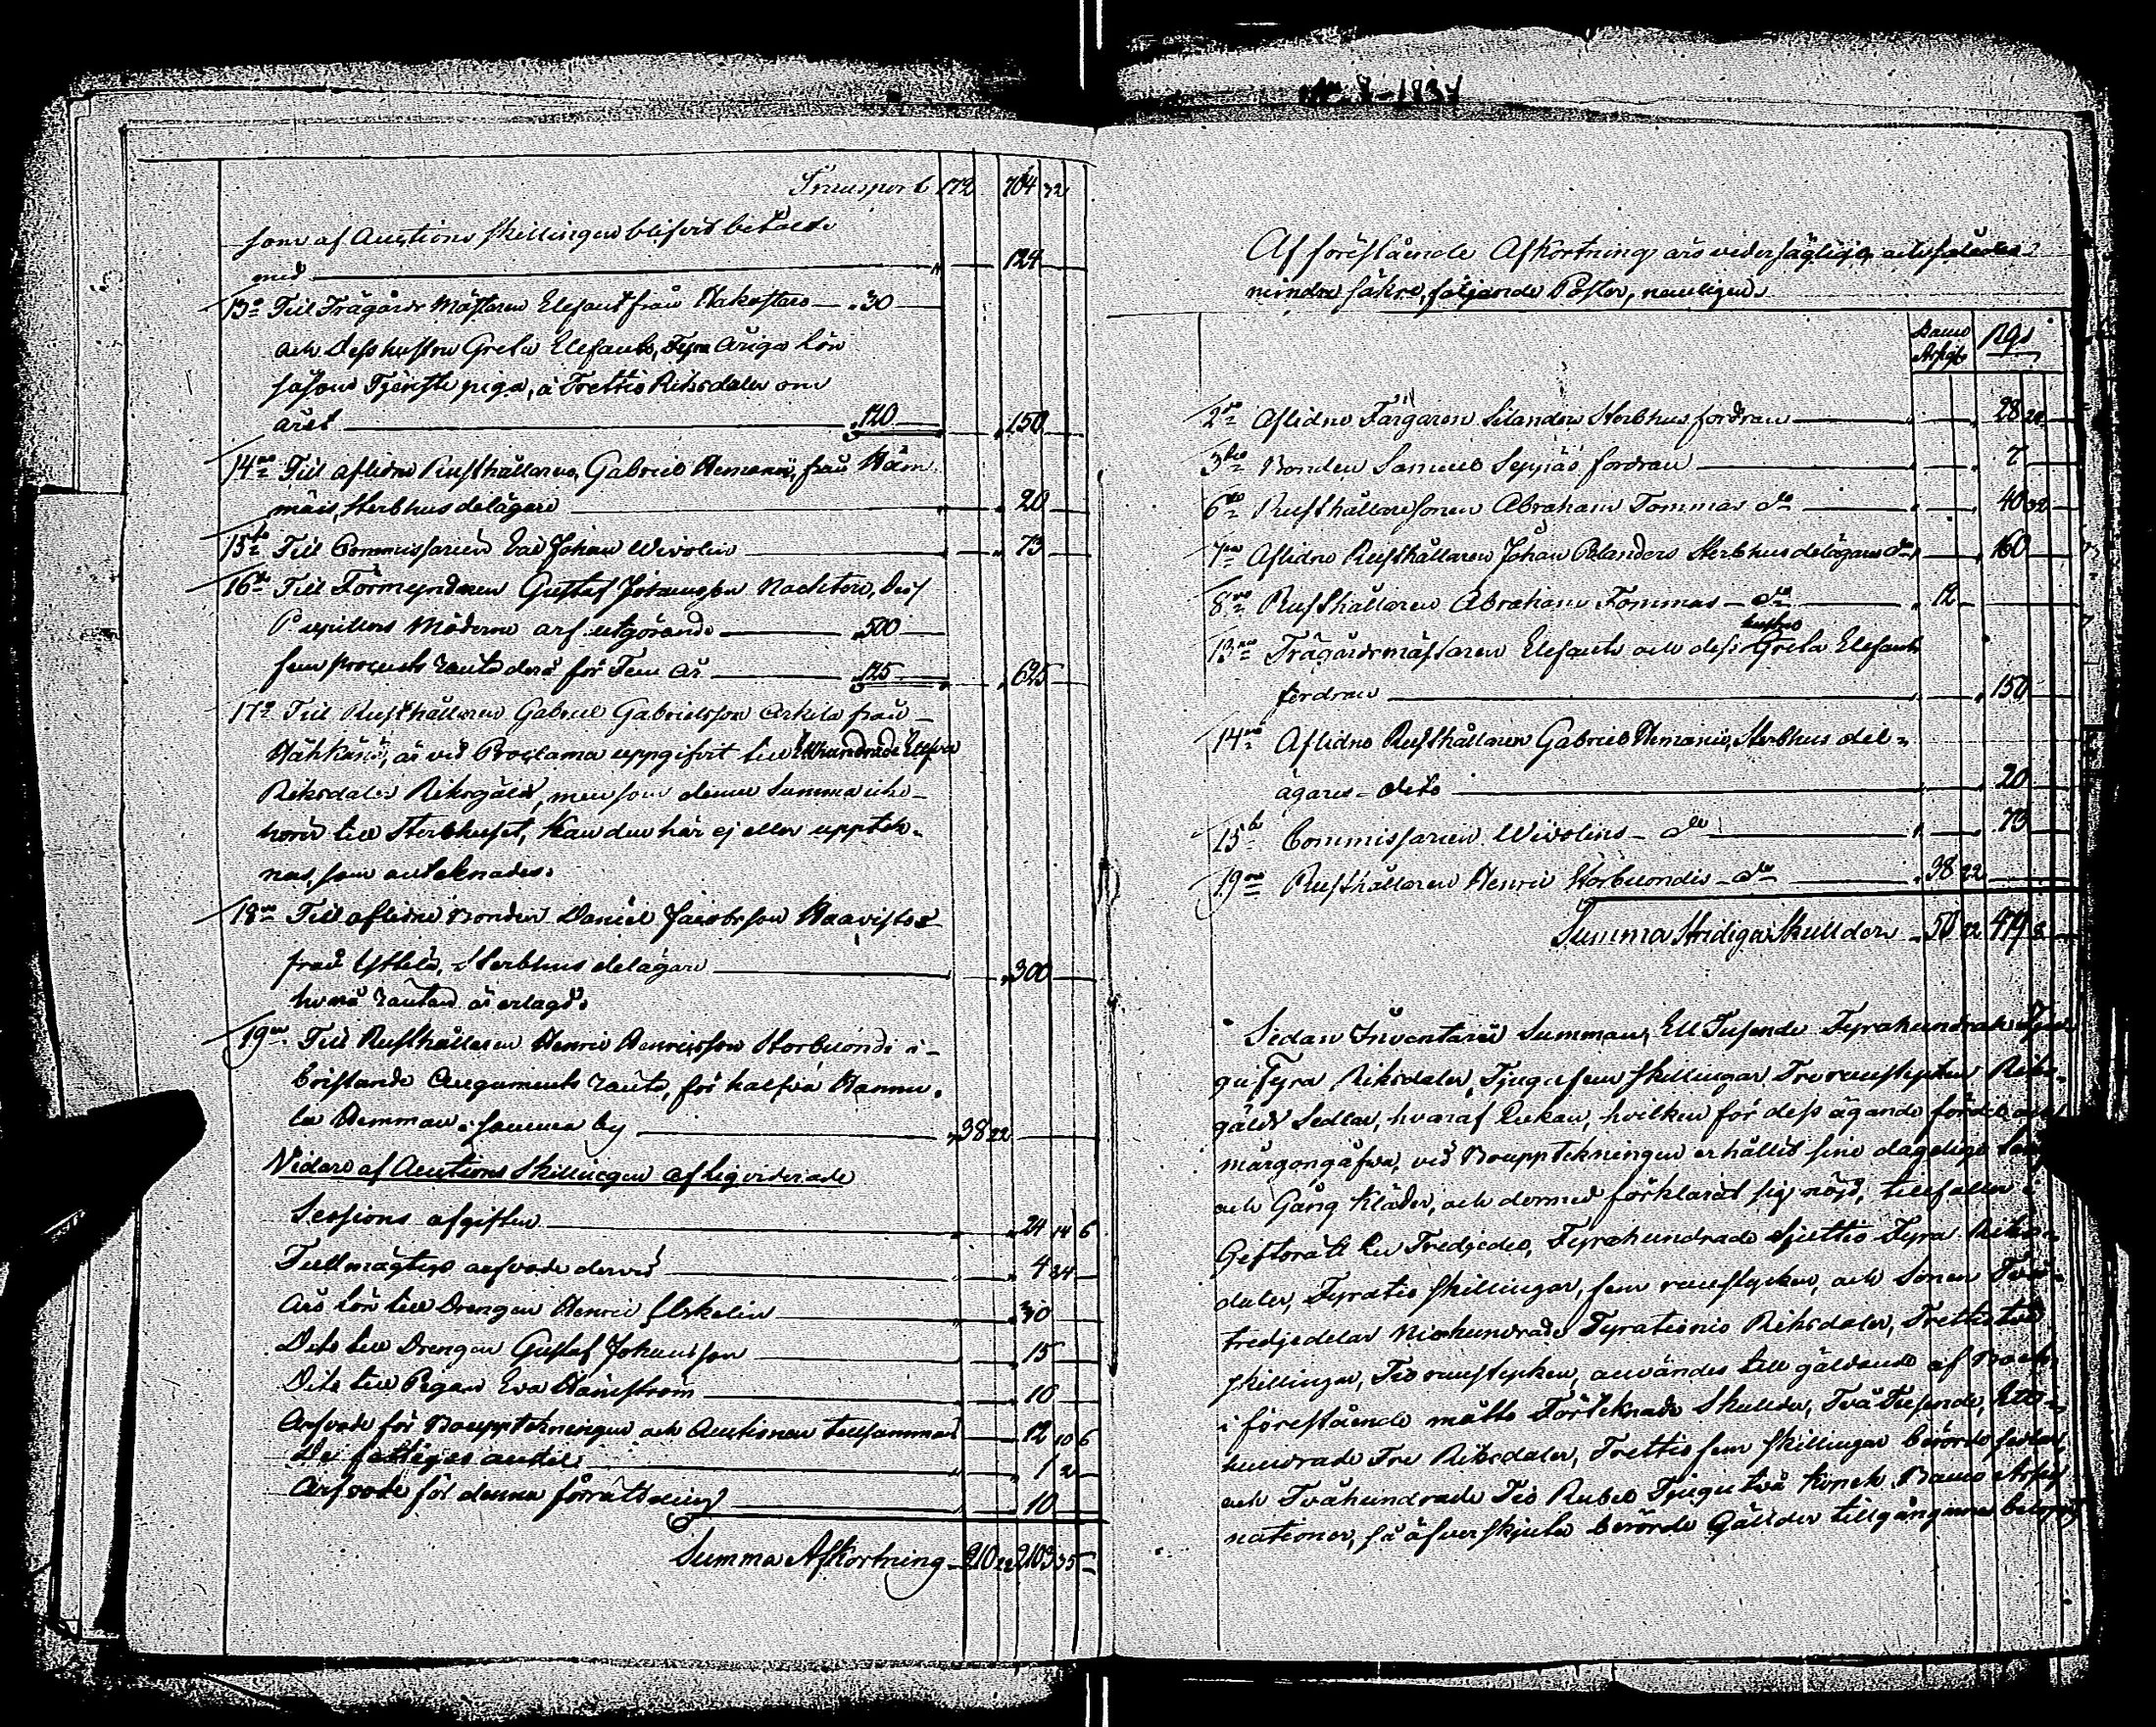 Transport 172 704 32
som af Auctions skillingen blifvit betalde
med 124
13o Till Trägårds Mästaren Elefant från Hakostaro 30
och dess hustru Greta Elefant, Fyra åriga lön
såsom Tjenste piga, à Trettio Riksdaler om
året 120 150
14de Till aflidne Rusthållaren Gabriel Hemanis, från
Sterbhus delägare 20
15de Till Commissarien Carl Johan Wivolin 73
16de Till Förmyndaren Gustaf Johansson Dess
Pupillers Möderne arf utgörande 500
fem procents ränta derå för Fem år 125 625
17de Till Rusthållaren Gabriel Gabrielsson Arkila från
är vid Proclama uppgifvit till Etthundrade Ellfva
Riksdaler Riksgälds, men som denna Summa icke
hörer till Sterbhuset, kan den här ej eller uppteck-
nas, som antecknades.
18de Till aflidne Bonden Daniel Jacobsson Haavisto
från Yttelä, Sterbhus delägare 300
hvarå räntan är erlagd.
19de Till Rusthållaren Henric Henricsson Storbiondi i-
bristande Augments ränta, för halfva Hannu-
la Hemman i samma by 38 22
Vidare af Auctions Skillingen afliqviderade
Sessions afgiften 24 14 6
Fullmägtigs arfvode dervid 4 24
Års lön till Drengen Henric Eskelin 30
Dito till Drengen Gustaf Johansson 15
Dito till Pigan Eva Hainström 10
Arfvode för Bouppteckningen och Auctionen tillsammans 12 10 6
De fattigas andel 1 2
Arfvode för denna förrättning 10
Summa Afkortning 210 22 2103 35
1834
Af förestående Afkortning äro vedersägliga och således
mindre säkre, följande Poster, nemligen.
Banco Assigt. Rgs
2do Aflidne Färgaren Silanders Sterbhus fordran 28 24
3tio Bonden Samuel Seppäs fordran 7
6to Rusthållaresonen Abraham Tommas do 40 32
7mo Aflidne Rusthållaren Johan Polanders Sterbhus delägares do 160
8vo Rusthållaren Abraham Tommas do 12
13de Trägårdsmästaren Elefants och dess hustru Greta Elefants
fordran 150
14de Aflidne Rusthållaren Gabriel Hemanis, Sterbhus del-
ägares dito 20
15de Commissarien Wivolins do 73
19de Rusthållaren Henric Storbiondis do 38 22
Summa Stridiga Skullder 50 22 479 8
Sedan Inventarii Summan, Ett Tusende Fyrahundrade
gufyra Riksdaler, Tjugufem skillingar Tre runstycken Riks-
gälds Sedlar, hvaraf Enkan, hvilken för dess ägande fördel och
märgongåfva, vid Bouppteckningen erhållit sine dagelige
och Gång kläder, och dermed förklarat sig nöjd, tillfaller i
Giftorätt En Tredjedel, Fyrahundrade Sjuttio Fyra Riks-
daler, Fyratio skillingar, fem runstycken, och Sonen Två-
tredjedelar Niohundrade Fyrationio Riksdaler, Trettiotvå
skillingar, Tio runstycken, användes till gäldande af
i förestående måtto Förtecknade Skullder, Två Tusende, Ett-
hundrade Tre Riksdaler, Trettio fem skillingar berörde sedlar,
och Tvåhundrade Tio Rubel Tjugutvå Kopek Banco Assig-
nationer, så äfverskjuta berörde Gällder tillgångarne